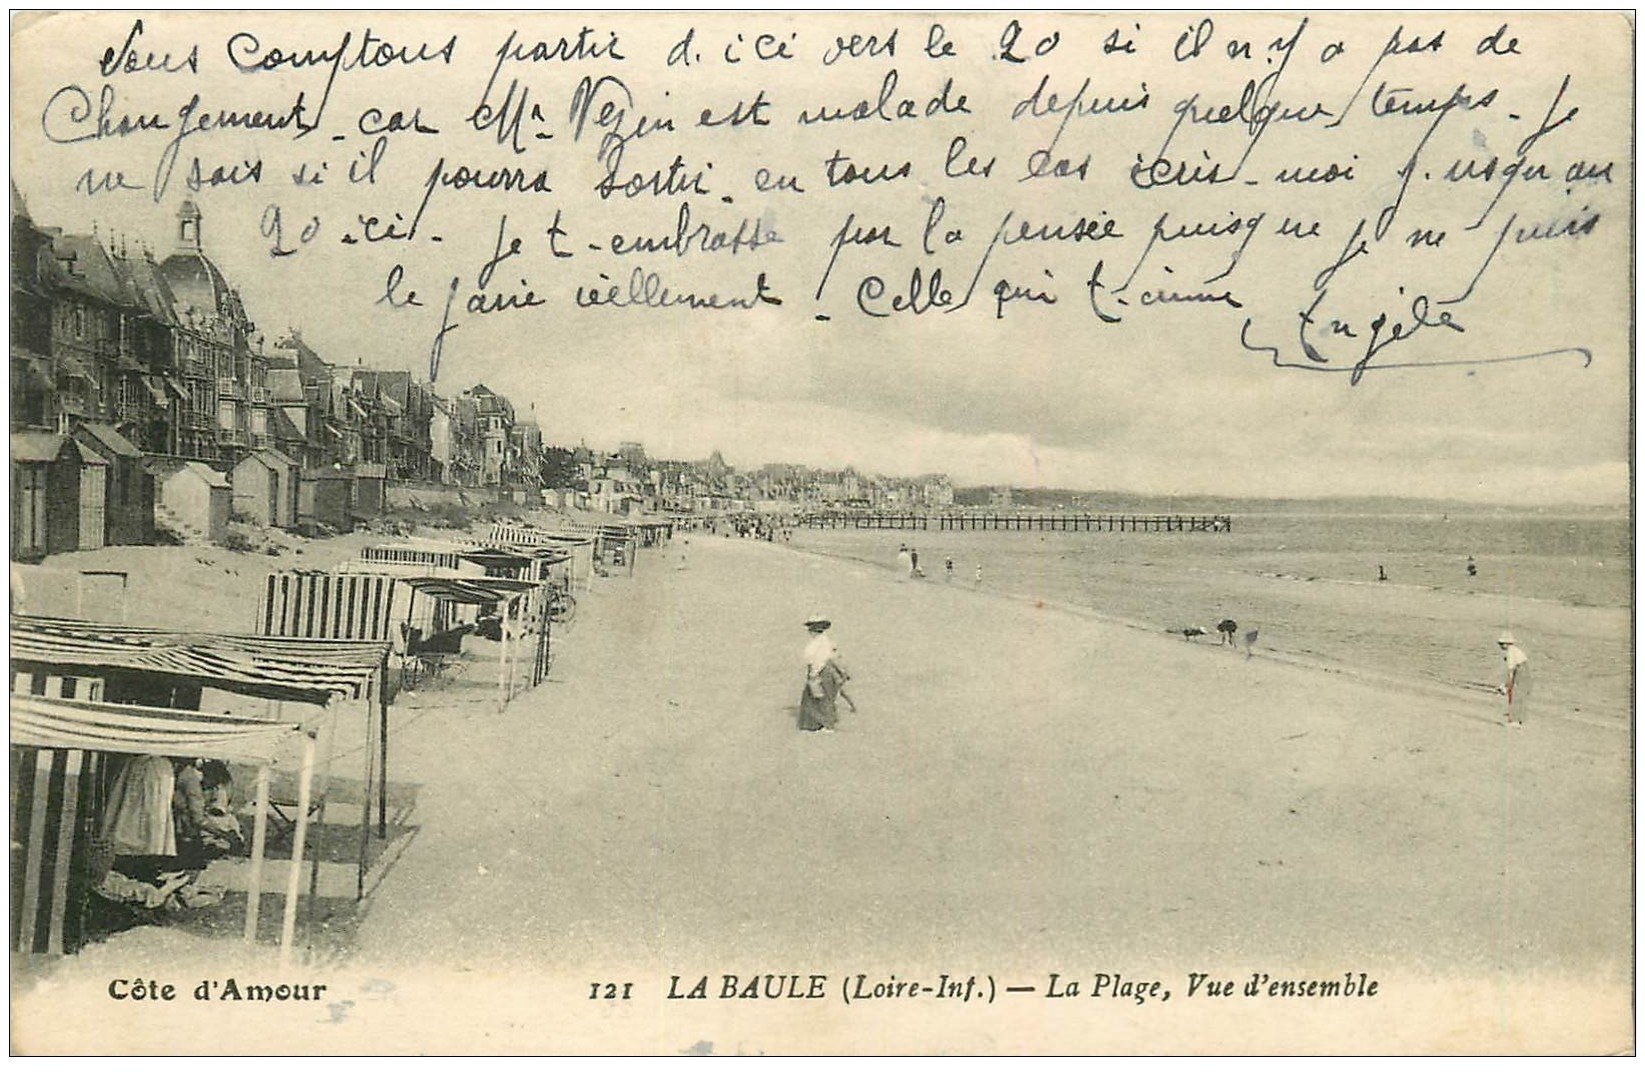 Nous Comptons partir d. ici vers le 20 si il n. y a pas de
Changement - car Mr Vezin est malade depuis quelque temps - Je
ne sais si il pourra sortir - en tous les cas écris - moi j. usqu au
20 ici - Je t - embrasse par la pensée puisque je ne puis
le faire réellement - Celle qui t - aime
Angèle
Côte d'Amour
121 LA BAULE (Loire-Inf.) — La Plage, Vue d'ensemble